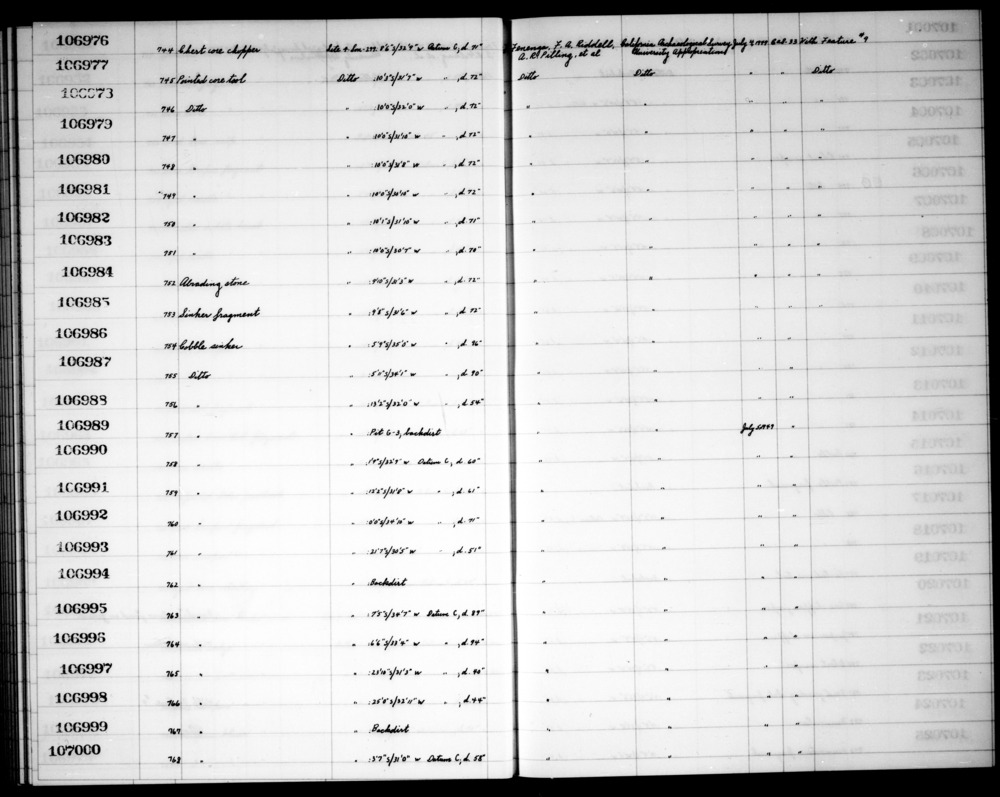 106976 744 Chert core chopper Site 4-Son-299. 8'6"S/32'4"W Datum C, d. 71" Fenenga, F. A. Riddell, California Archaeological Survey July 4, 1949 Cat. 33 With Feature #9
A. R. Pilling, et al University Appropriations
106977 745 Pointed core tool Ditto :10'5"S/31'3"W " , d. 72" Ditto Ditto " " Ditto
106978 746 Ditto " :10'0"S/32'0"W " , d. 72" " " " " "
106979 747 " " :10'0"S/31'10"W " , d. 72" " " " " "
106980 748 " " :10'0"S/31'8"W " , d. 72" " " " " "
106981 749 " " :10'0"S/30'10"W " , d. 72" " " " " "
106982 750 " " :10'1"S/31'10"W " , d. 71" " " " " "
106983 751 " " :10'0"S/30'7"W " , d. 70" " " " " "
106984 752 Abrading stone " :9'0"S/31'3"W " , d. 72" " " " " "
106985 753 Sinker fragment " :9'8"S/31'6"W " , d. 72" " " " "
106986 754 Cobble sinker " :5'9"S/35'0"W " , d. 96" " " " "
106987 755 Ditto " :5'0"S/34'1"W " , d. 90" " " " "
106988 756 " " :13'2"S/32'0"W " , d. 54" " " " "
106989 757 " " :Pit G-3, backdirt " " July 5, 1949 "
106990 758 " " :1'9"S/32'9"W Datum C, d. 60" " " " "
106991 759 " " :12'2"S/31'8"W " , d. 61" " " " "
106992 760 " " :0'0"S/34'10"W " , d. 71" " " " "
106993 761 " " :21'7"S/30'5"W " , d. 51" " " " "
106994 762 " " :Backdirt " " " "
106995 763 " " :7'5"S/34'7"W Datum C, d. 89" " " " "
106996 764 " " :6'6"S/33'4"W " , d. 94" " " " "
106997 765 " " :23'10"S/31'3"W " , d. 40" " " " "
106998 766 " " :25'5"S/32'11"W " , d. 44" " " " "
106999 767 " " :Backdirt " " " "
107000 768 " " :3'7"S/31'0"W Datum C, d. 58" " " " "